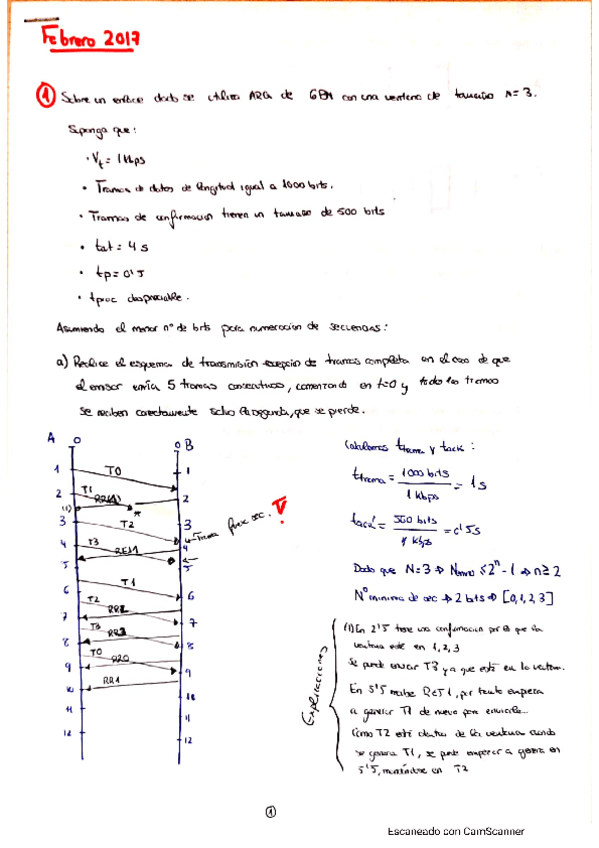 Febrero 2017
① Sobre un enlace dado se utiliza ARQ de GBN con una ventana de tamaño n=3.
Suponga que:
· Vt = 1 kbps
· Tramas de datos de longitud igual a 1000 bits.
· Tramas de confirmación tienen un tamaño de 500 bits
· tat = 4 s
· tp = 0'5
· tproc despreciable.
Asumiendo el menor nº de bits para numeracion de secuencias:
a) Realice el esquema de transmisión-recepción de tramas completa en el caso de que
el emisor envía 5 tramas consecutivas, comenzando en t=0 y todas las tramas
se reciben correctamente salvo la segunda, que se pierde.
A 0 0 B
1 T0 1
2 T1 2
(1)
3 T2 3
4 T3 REJ1 4
5 5
6 T1 6
T2
7 RR2 7
T3
8 RR3 8
T0
9 RR0 9
10 RR1 10
11 11
12 12
Trama fuera sec.
Calculamos ttrama y tack:
ttrama = 1000 bits / 1 kbps = 1s
tack = 500 bits / 1 kbps = 0'5s
Dado que N=3 ⇒ ≤ 2ⁿ-1 ⇒ n≥2
Nº mínimo de sec ⇒ 2 bits ⇒ [0,1,2,3]
Explicaciones
(1) En 2'5 tiene una confirmacion por B que la
ventana esté en 1,2,3
Se puede enviar T3 ya que está en la ventana.
En 5'5 recibe REJ1, por tanto empieza
a generar T1 de nuevo para enviarla...
Como T2 está dentro de la ventana cuando
se genera T1, se puede empezar a generar en
5'5, T2
①
Escaneado con CamScanner